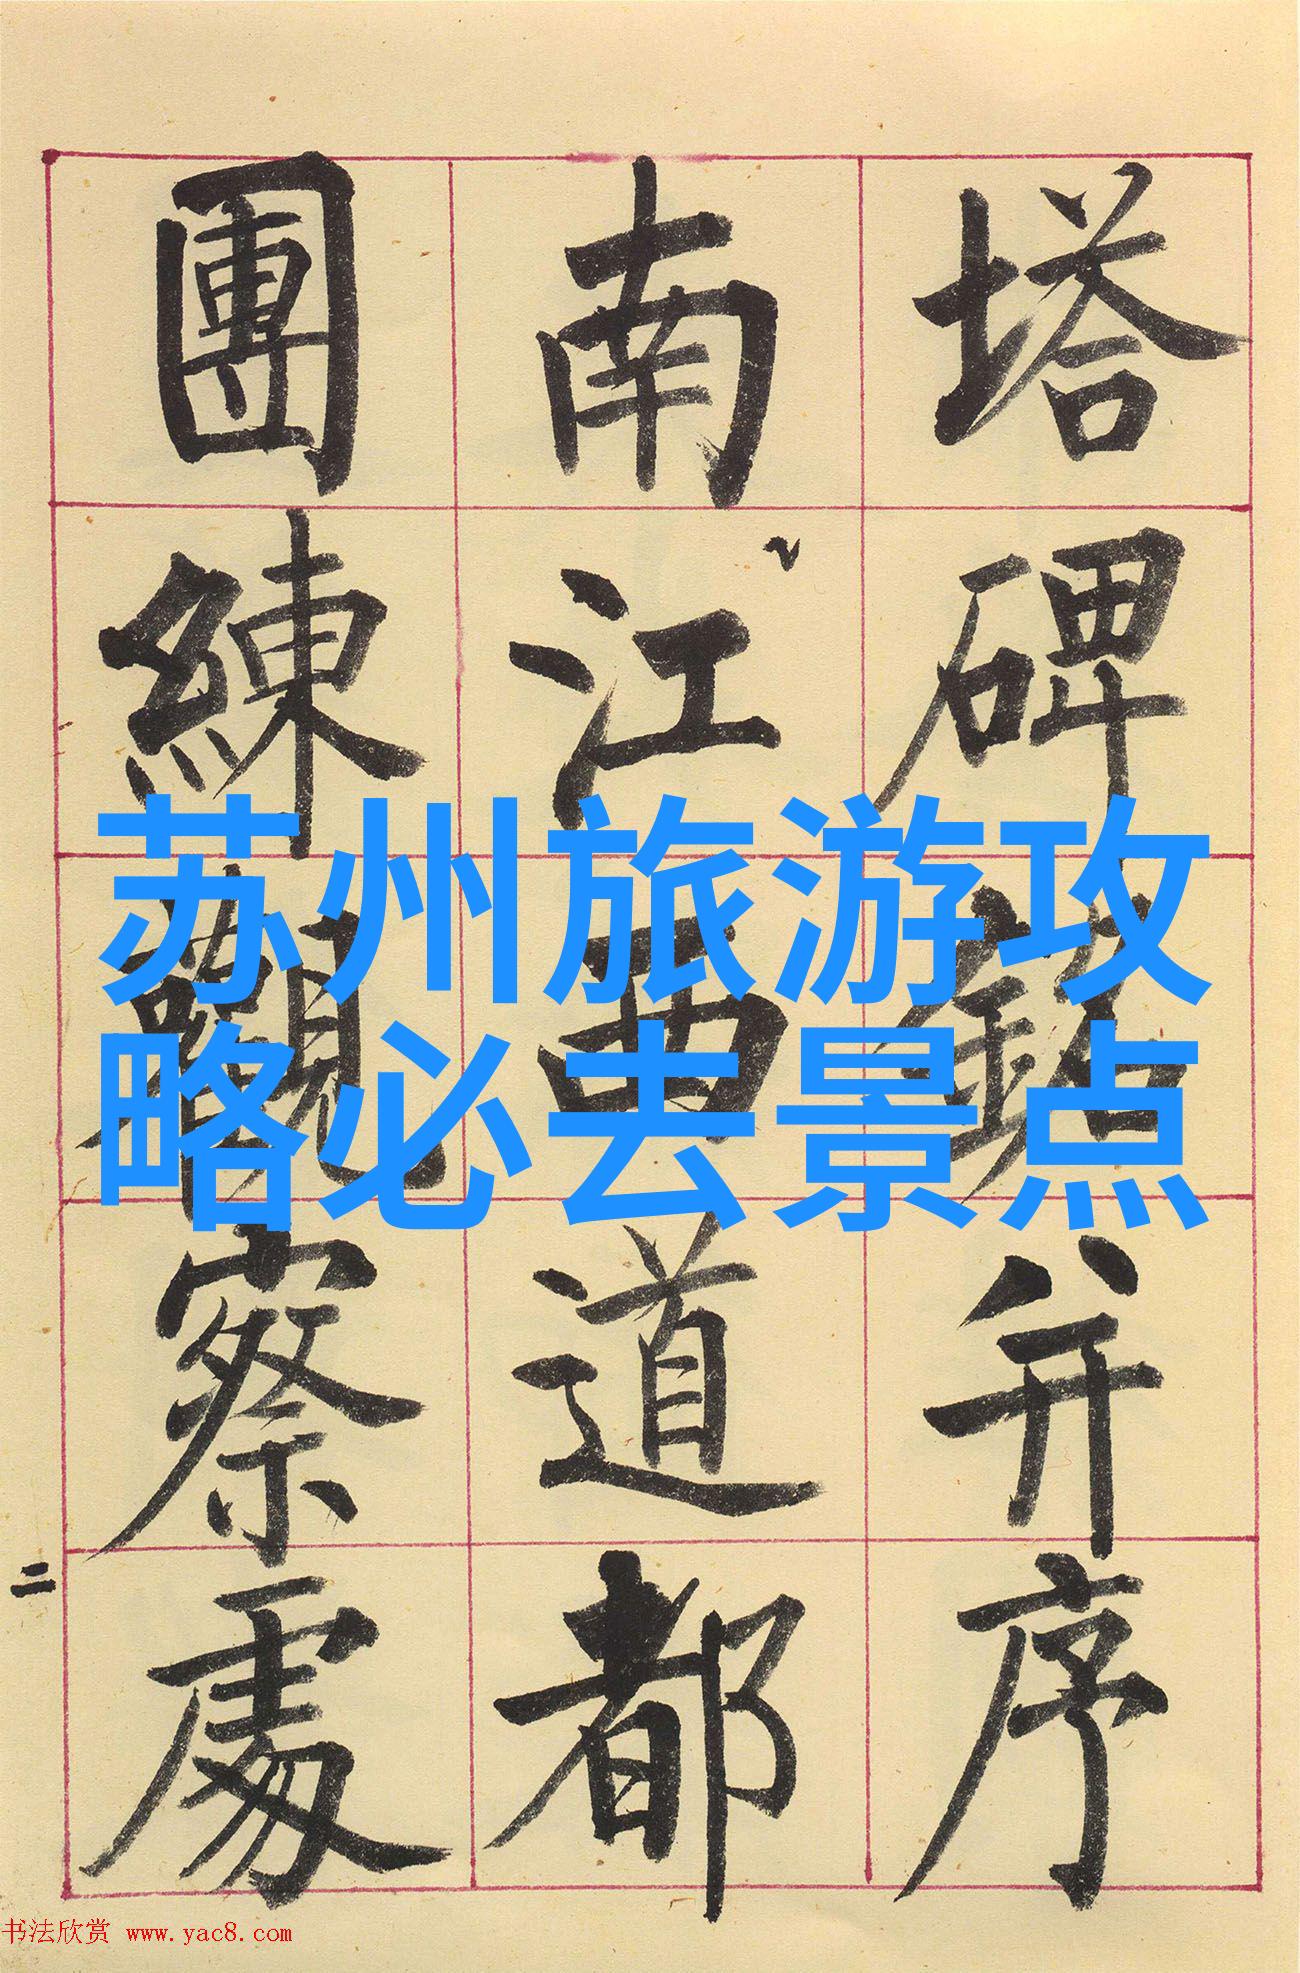 塔碑銘并序
南江西道都
團練觀察處
二
苏州旅游攻
略必去景点
书法欣赏 www.yac8.com